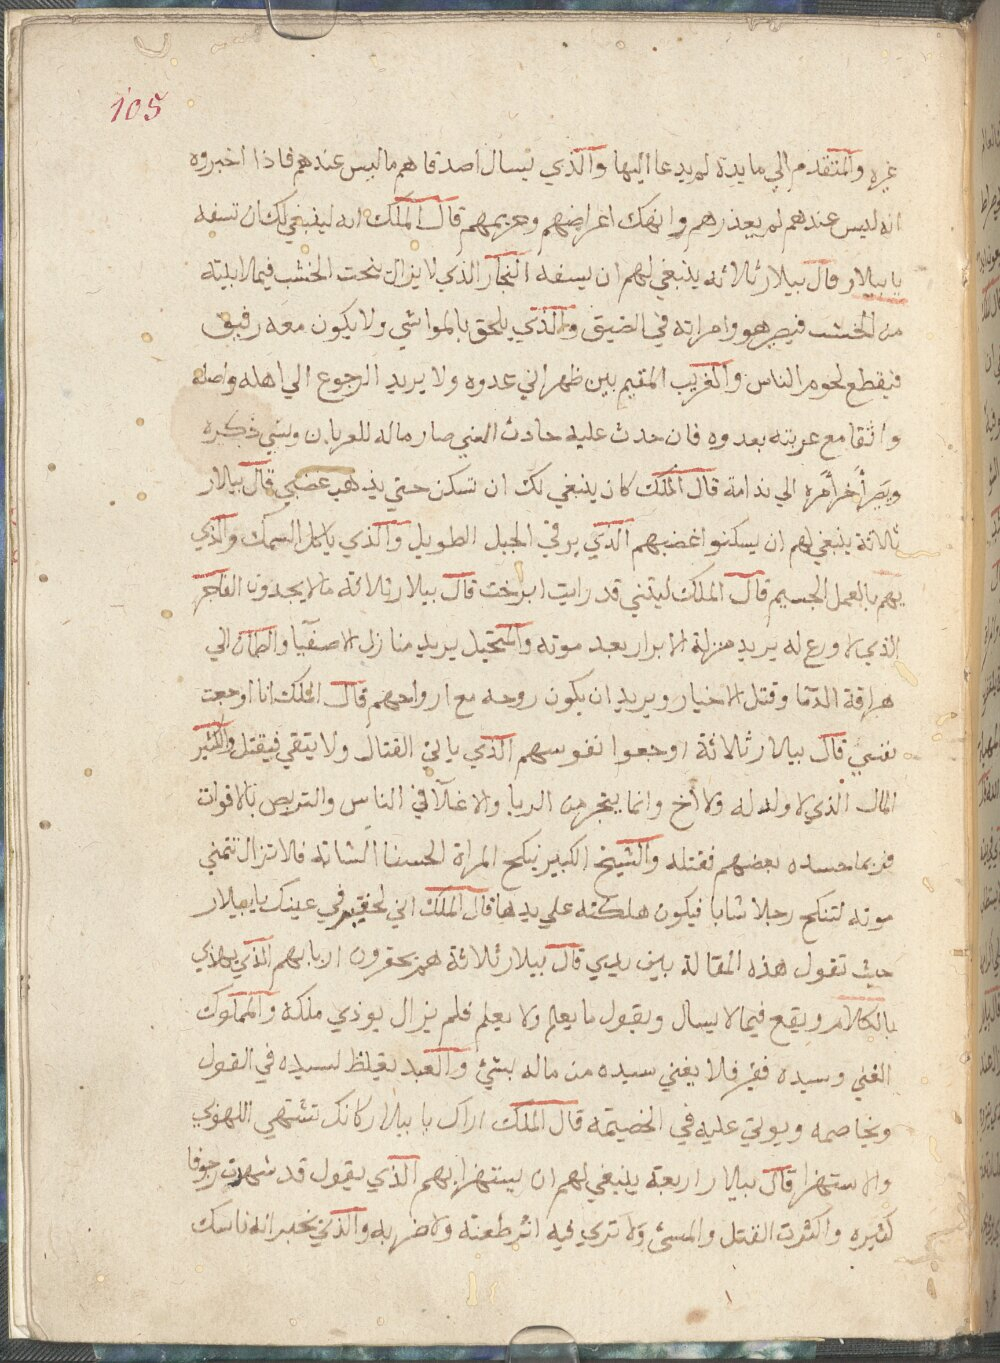 105
غيره والمتقدم الي مايدة لم يدعا اليها والذي يسال اصدقاهم ما ليس عندهم فاذا اخبروه
انه ليس عندهم لم يعذرهم وانهك اعراضهم وحريمهم قال الملك انه لينبغي لك ان تسفه
يا بيلار قال بيلار ثلاثه ينبغي لهم ان يسفه النجار الذي لا يزال ينحت الخشب فيملا بيته
من الخشب فيصير هو وامراته في الضيق والذي يلحق بالمواشي ولا يكون معه رفيق
فيقطع لحوم الناس والغريب المقيم بين ظهراني عدوه ولا يريد الرجوع الي اهله واصله
واتقا مع غربته بعدوه فان حدث عليه حادث الغني صار ماله للغربان ونسي ذكره
ويصير اخر امره الي ندامة قال الملك كان ينبغي لك ان تسكن حتي يذهب غضبي قال بيلار
ثلاثة ينبغي لهم ان يسكنوا غضبهم الذي يرقي الجبل الطويل والذي ياكل السمك والذي
يهم بالعمل الجسيم قال الملك ليتني قد رايت ابراخت قال بيلار ثلاثة مالا يجدون الفاجر
الذي لا ورع له يريد منزلة الابرار بعد موته والبخيل يريد منازل الاصفيا والظمان الي
هراقة الدما وقتل الاخيار ويريد ان يكون روحه مع ارواحهم قال الملك انا اوجعت
نفسي قال بيلار ثلاثة اوجعوا نفوسهم الذي ياتي القتال ولا يتقي فيقتل والكثير
المال الذي لا ولد له ولا أخ وانما يتجر من الربا والاغلا في الناس والتربص بالاقوات
فربما حسده بعضهم فقتله والشيخ الكبير ينكح المراة الحسنا الشابه فلا تزال تتمني
موته لتنكح رجلا شابا فيكون هلكته علي يدها قال الملك اني لحقير في عينك يا بيلار
حيث تقول هذه المقالة بين يدي قال بيلار ثلاثة هم يحقرون اربابهم الذي يهذي
بالكلام ويقع فيما لا يسال ويقول ما يعلم ولا يعلم فلم يزال يوذي ملكه والمملوك
الغني وسيده فقير فلا يغني سيده من ماله بشئ والعبد يغلظ لسيده في القول
ويخاصمه ويولتي عليه في الخصيتمه قال الملك اراك يا بيلار كانك تشتهي اللهوي
والاستهزا قال بيلار اربعة ينبغي لهم ان يستهزا بهم الذي يقول قد شهدت زحوفا
كثيره واكثرت القتل والمسئ ولا تري فيه اثر طعنته ولا ضربه والذي يخبر انه ناسك